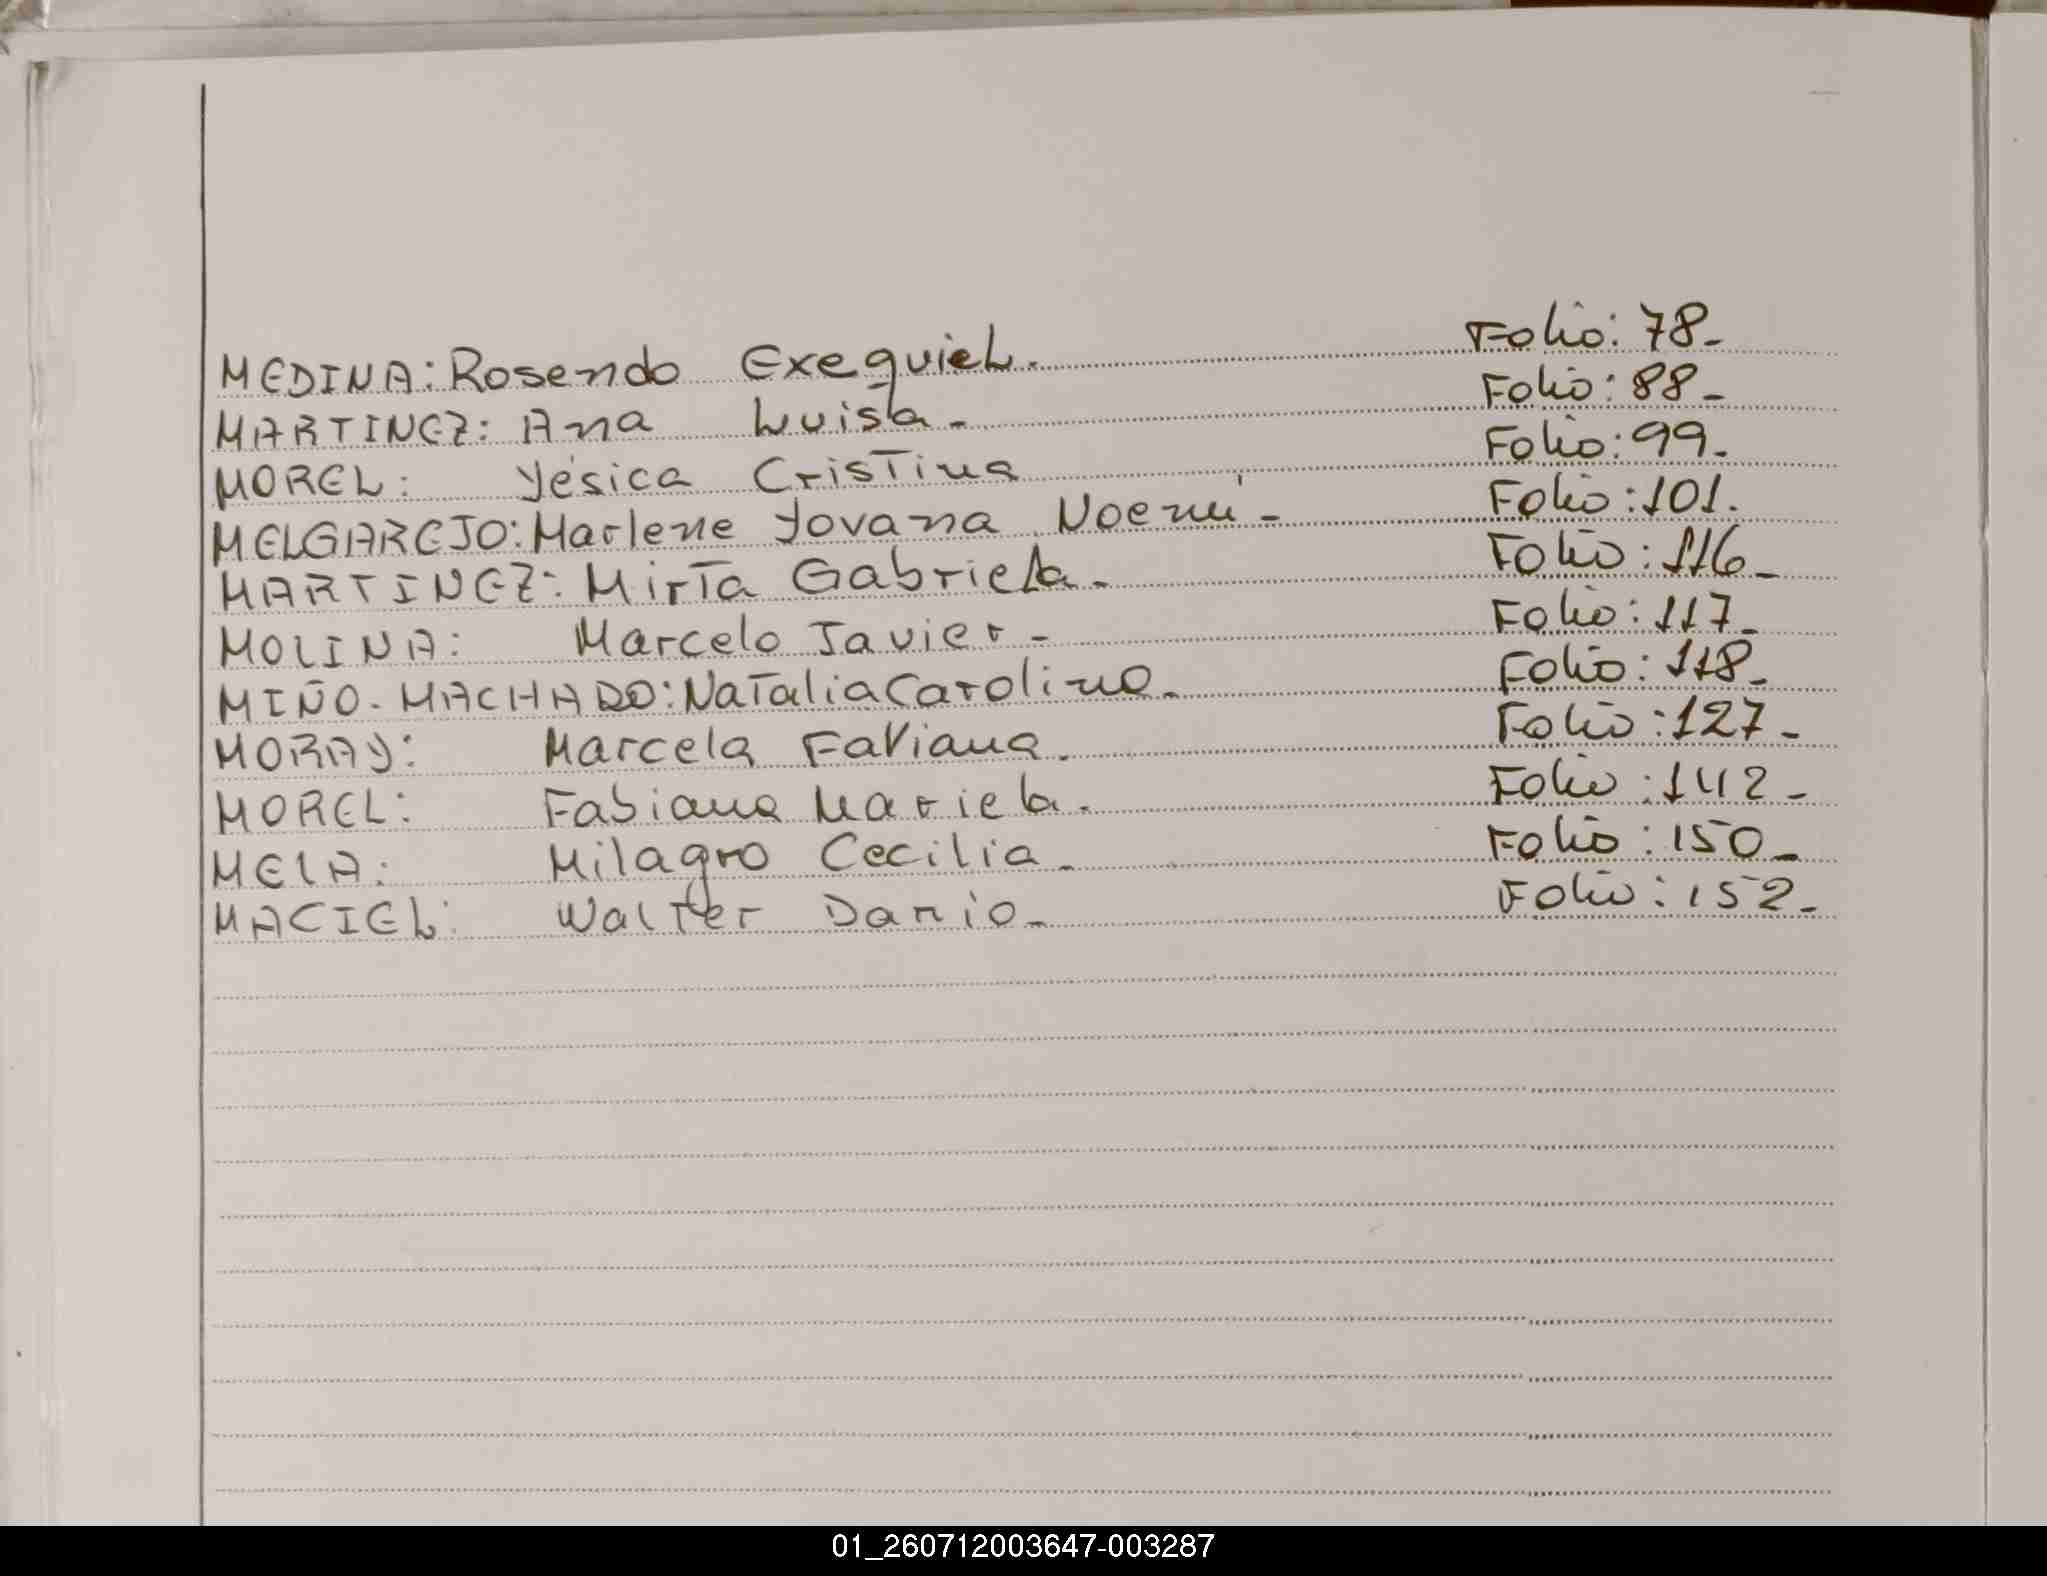 MEDINA: Rosendo Exequiel. Folio: 78-
MARTINEZ: Ana Luisa- Folio: 88-
MOREL: Yésica Cristina Folio: 99-
MELGAREJO: Marlene Yovana Noemí- Folio: 101.
MARTINEZ: Mirta Gabriela- Folio: 116-
MOLINA: Marcelo Javier- Folio: 117-
MIÑO-MACHADO: Natalia Carolina- Folio: 118-
MORAY: Marcela Faviana. Folio: 127-
MOREL: Fabiana Mariela. Folio: 142-
MELA: Milagro Cecilia- Folio: 150-
MACIEL: Walter Dario- Folio: 152-
01_260712003647-003287